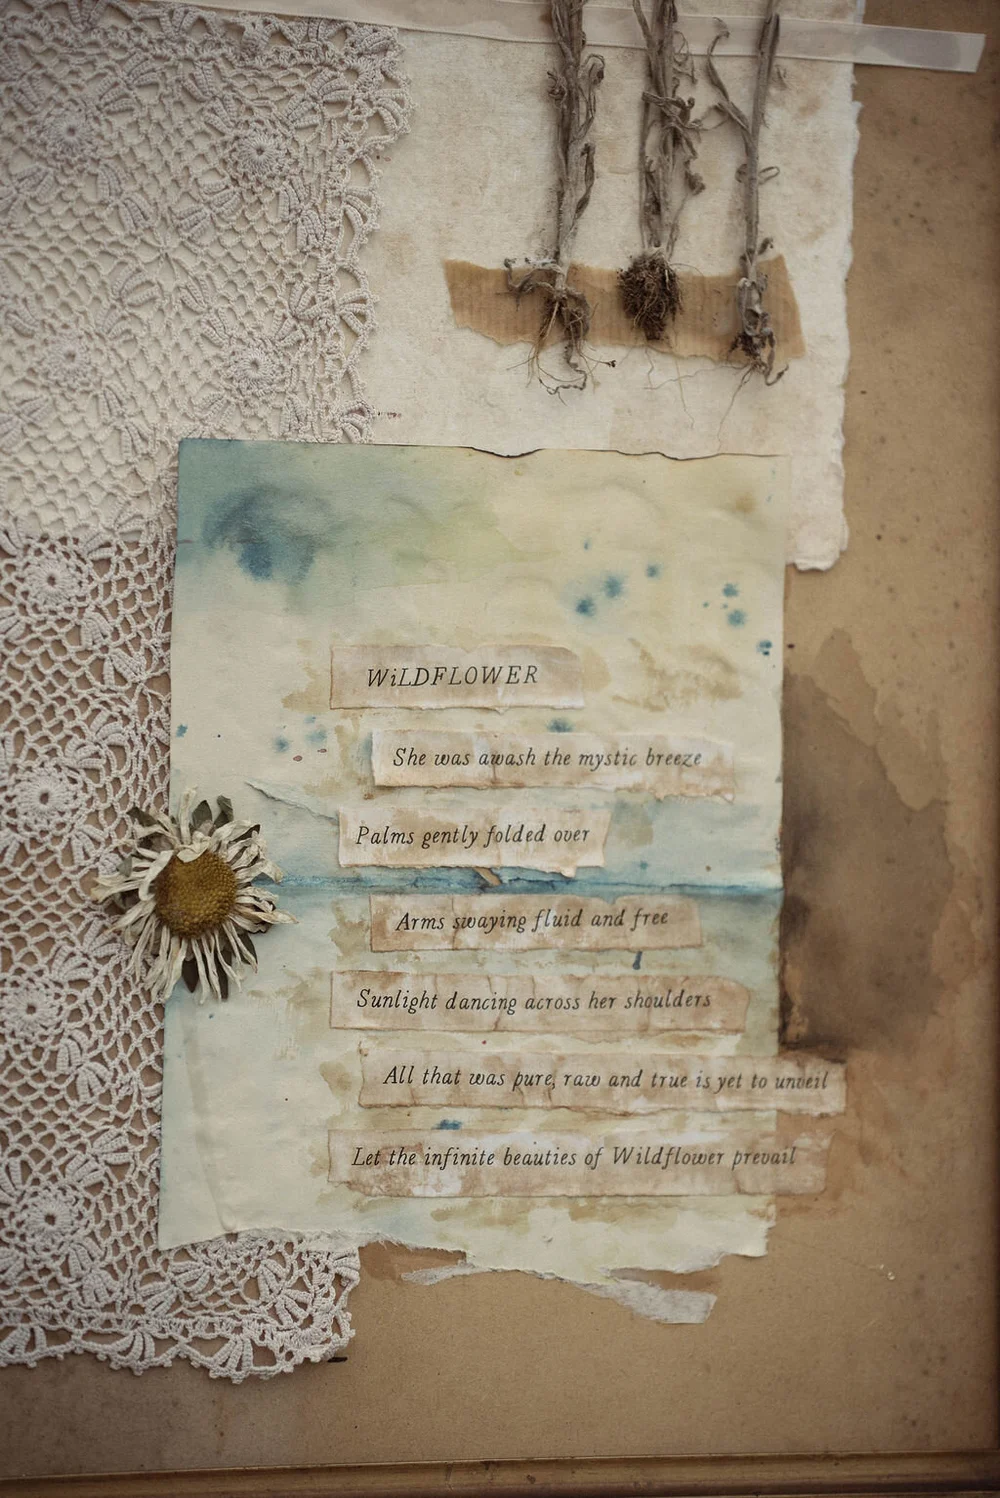 WiLDFLOWER
She was awash the mystic breeze
Palms gently folded over
Arms swaying fluid and free
Sunlight dancing across her shoulders
All that was pure, raw and true is yet to unveil
Let the infinite beauties of Wildflower prevail